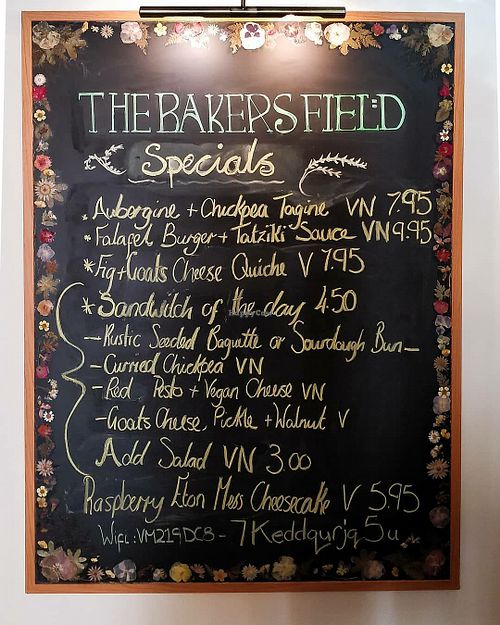 THE BAKERS FIELD
Specials
* Auborgine + Chickpea Tagine VN 7.95
* Falafel Burger + Tatziki Sauce VN 9.95
* Fig + Goats Cheese Quiche V 7.95
* Sandwitch of the day 4.50
- Rustic Seeded Baguette or Sourdough Bun -
- Curried Chickpea VN
- Red Pesto + Vegan Cheese VN
- Goats Cheese, Pickle + Walnut V
Add Salad VN 3.00
Raspberry Eton Mess Cheesecake V 5.95
Wifi: VM219DC8 - 7Keddqurjq5u